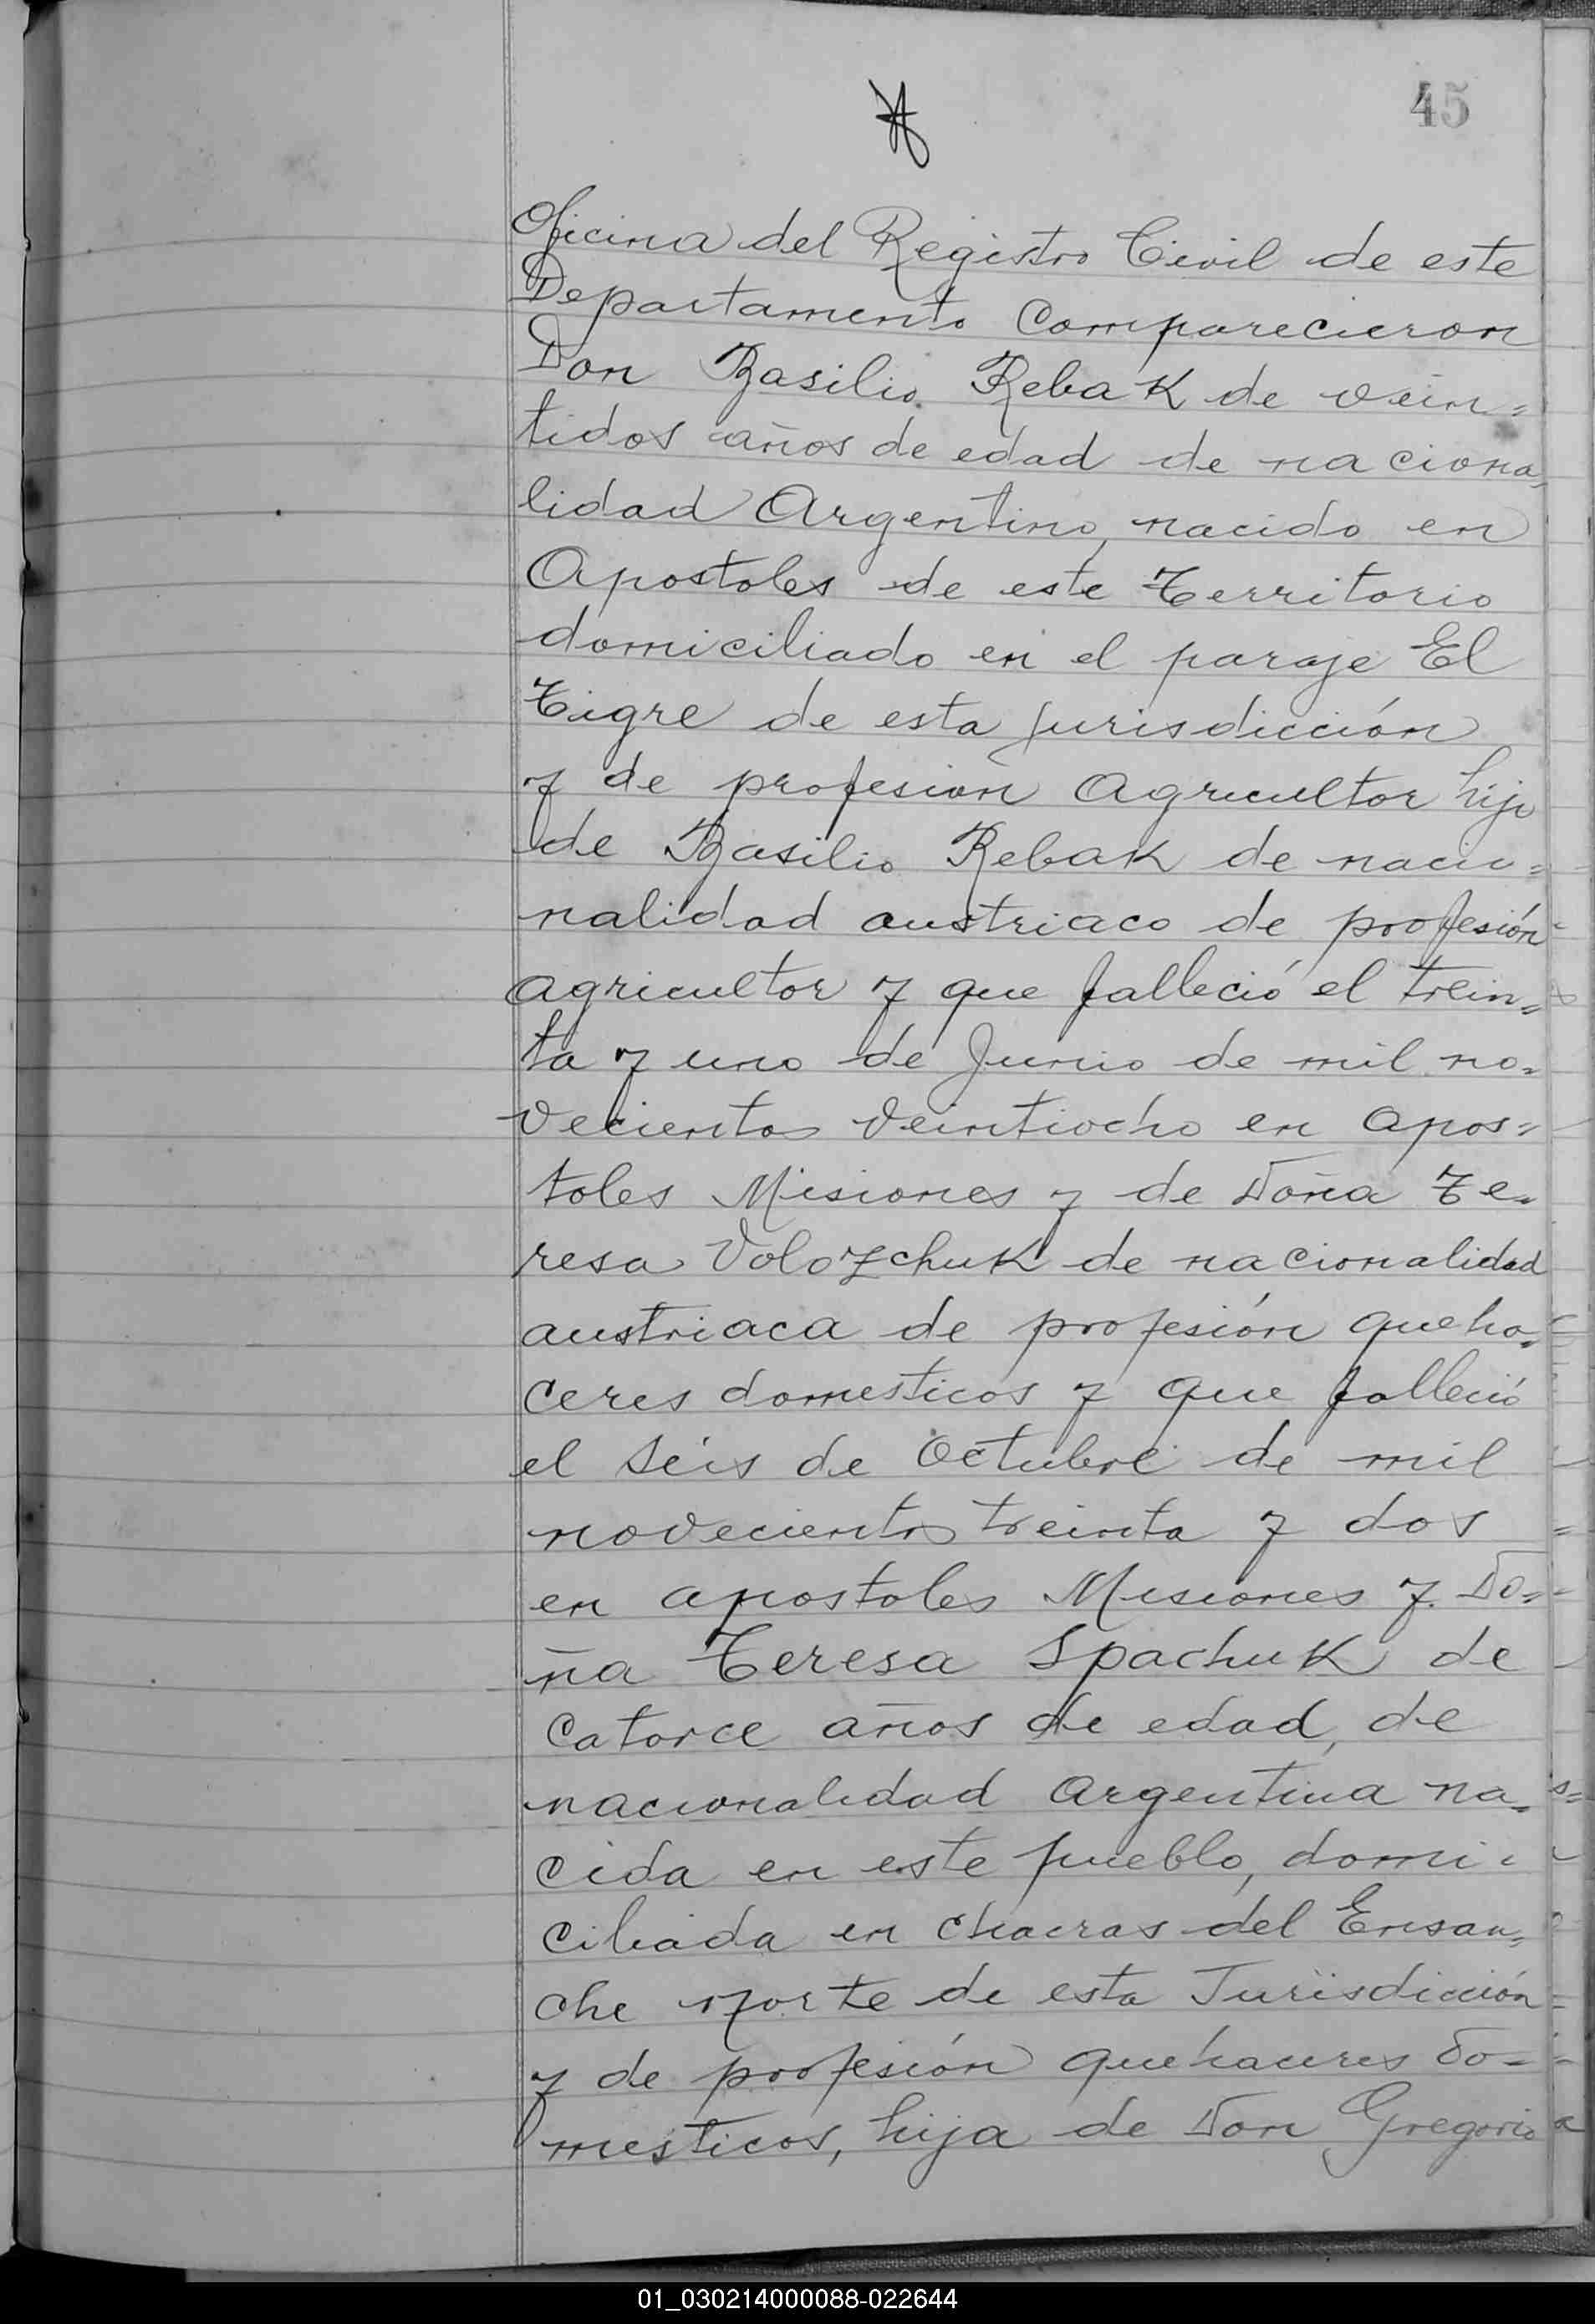 45
Oficina del Registro Civil de este
Departamento Comparecieron
Don Basilio Rebak de vein=
tidos años de edad de naciona=
lidad Argentino, nacido en
Apostoles de este Territorio
domiciliado en el paraje El
Tigre de esta jurisdicción
y de profesión Agricultor hijo
de Basilio Rebak de nacio=
nalidad austriaco de profesión
agricultor y que falleció el trein=
ta y uno de Junio de mil no=
vecientos veintiocho en Apos=
toles Misiones y de Doña Te=
resa Volozchuk de nacionalidad
austriaca de profesión queha=
ceres domesticos y que falleció
el seis de Octubre de mil
novecientos treinta y dos
en apostoles Misiones y Do=
ña Teresa Spachuk de
catorce años de edad, de
nacionalidad argentina na=
cida en este pueblo, domi=
ciliada en chacras del Ensan=
che Norte de esta Jurisdicción
y de profesión quehaceres do=
mesticos, hija de Don Gregorio
01_030214000088-022644